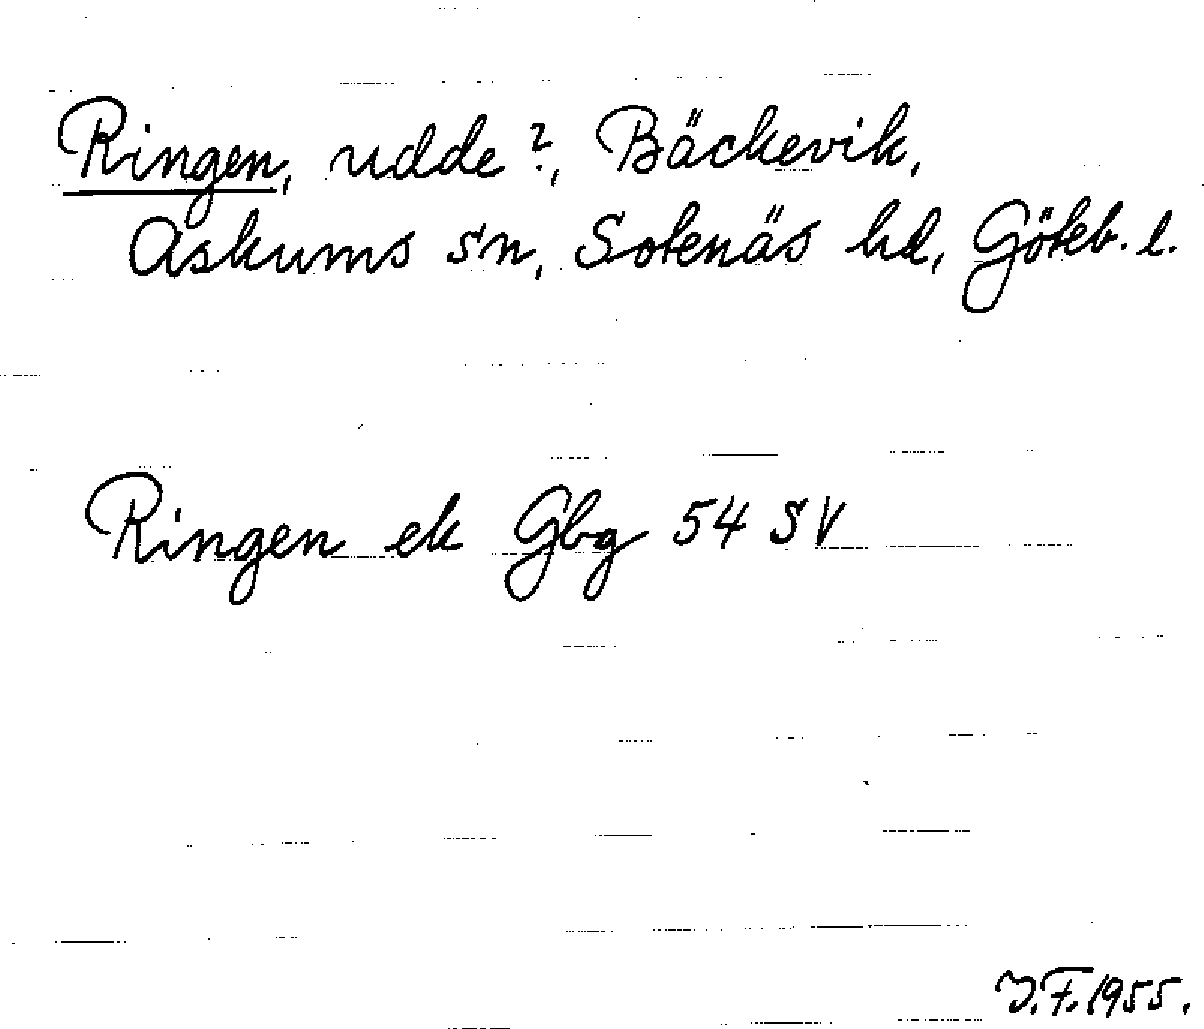 Ringen, udde ?, Bäckevik,
Askums sn, Sotenäs hd, Göteb. l.
Ringen ek Gbg 54 SV
J.F. 1955.